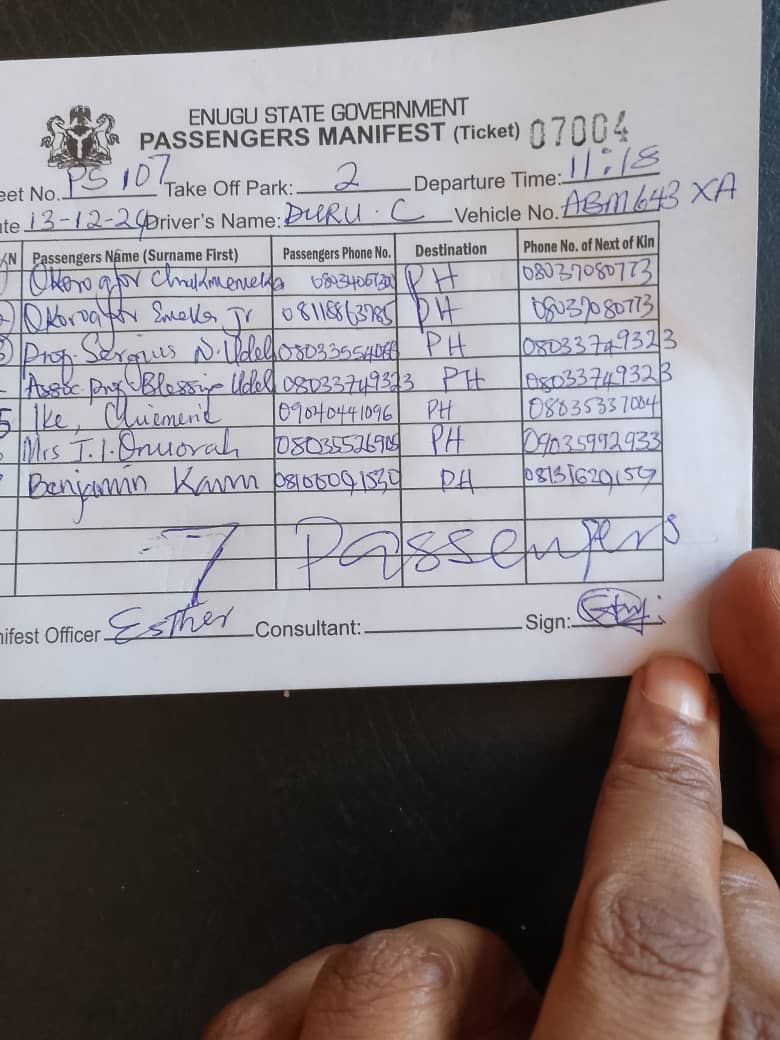 ENUGU STATE GOVERNMENT
PASSENGERS MANIFEST (Ticket) 07004
eet No. PS 107 Take Off Park: 2 Departure Time: 11:18
ate 13-12-24 Driver's Name: DURU. C Vehicle No. ABM 643 XA
N Passengers Name (Surname First) Passengers Phone No. Destination Phone No. of Next of Kin
Okoroafor PH 08037080773
2 Okoroafor Emeka Jr 08118863785 PH 08037080773
3 Prof. Sergius N. Udeh PH 08033749323
Assoc prof Blessing Udeh 08033749323 PH 08033749323
5 Ike, 09040441096 PH 08035337004
Mrs T. I. Onuorah PH 09035992933
Benjamin PH
7 Passengers
nifest Officer Esther Consultant: Sign: